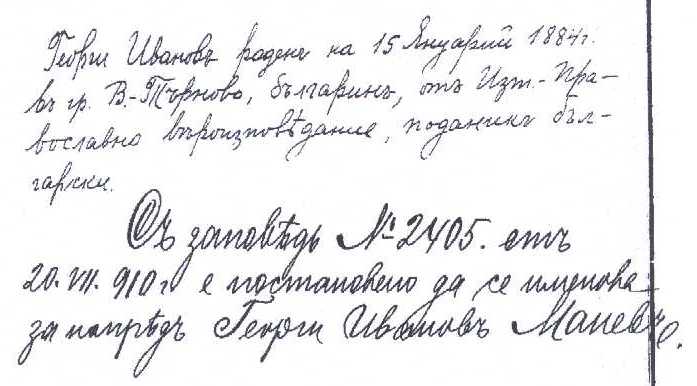 Георги Ивановъ роденъ на 15 Януарий 1884 г.
въ гр. В.-Търново, българинъ, отъ Изт.-Пра-
вославно вѣроизповѣдание, поданикъ бъл-
гарски.
Съ заповѣдь № 2405. отъ
20. VII. 910 г. е постановено да се именова
за напрѣдъ Георги Ивановъ Маневъ.